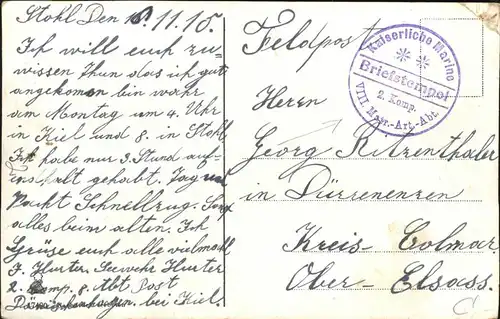 Stohl Den 16.11.15.
Ich will euch zu-
wissen thun das ich gut
angekomen bin war
am Montag um 4 Uhr
in Kiel und 8. in Stohl
Ich habe nur 3. Stund auf-
enthalt gehabt. Tag und
Nacht Schnellzug. Sonst
alles beim alten. Ich
Grüse euch alle vielmahl
J. Hurter, Seewehr Hurter
2. Komp. 8. Abt Post
Dänischenhagen bei Kiel.
Feldpost
Kaiserliche Marine
Briefstempel
2. Komp.
VIII. Matr.-Art.-Abt.
Herrn
Georg Ritzenthaler
in Dürrenenzen
Kreis Colmar
Ober-Elsass.